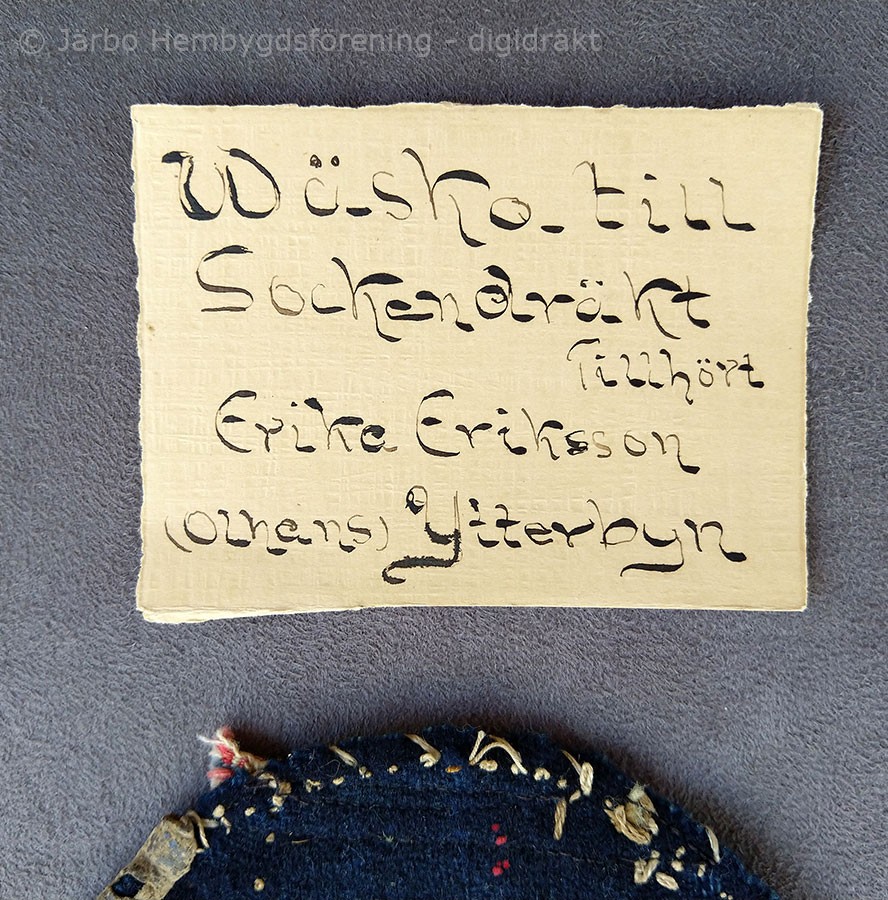 © Järbo Hembygdsförening - digidräkt
Wä-sko-till
Sockendräkt
Tillhört
Erika Eriksson
(Olhans) Ytterbyn